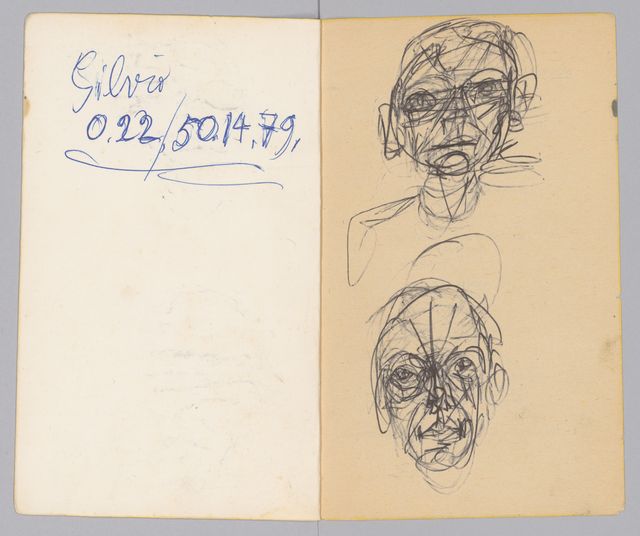 Silvio
0.22/50.14.79.